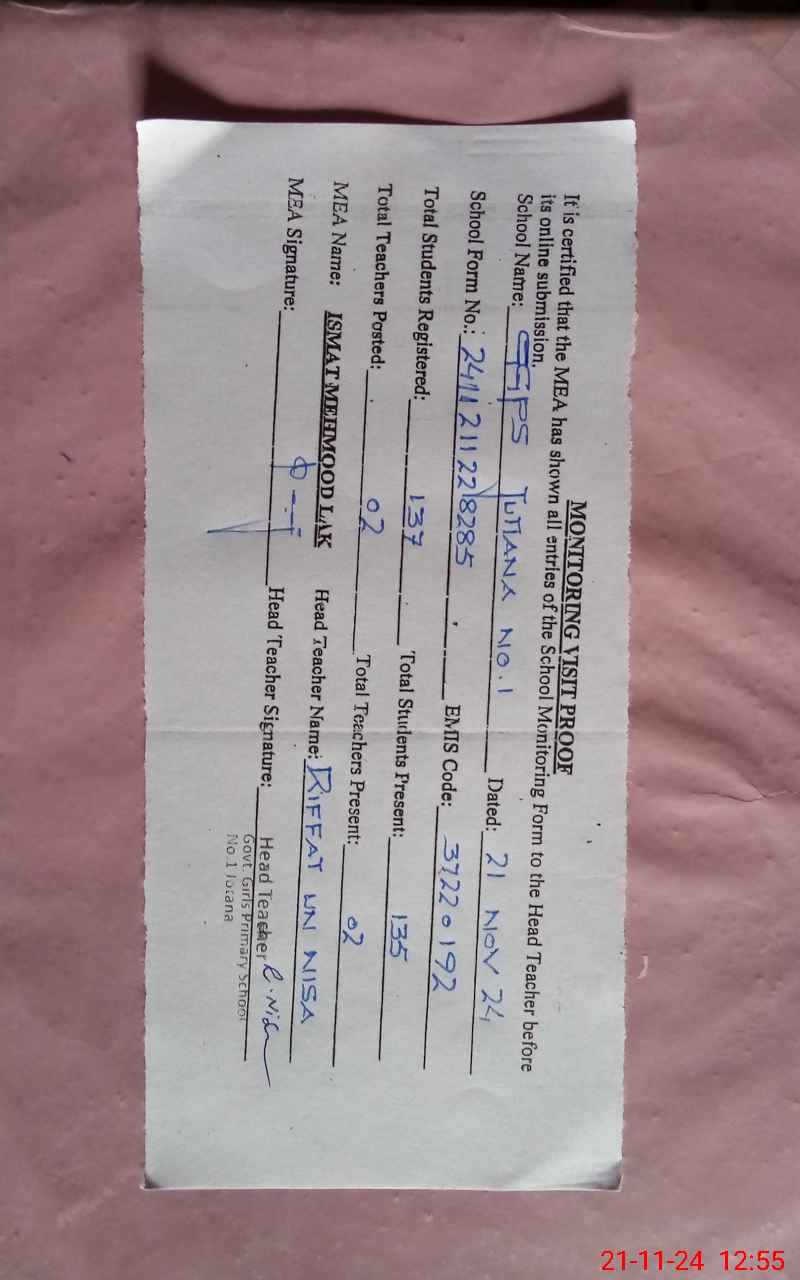 MONITORING VISIT PROOF
It is certified that the MEA has shown all entries of the School Monitoring Form to the Head Teacher before
its online submission.
School Name: GGPS No.1 Dated: 21 NOV 24
School Form No.: EMIS Code: 37220192
Total Students Registered: 137 Total Students Present: 135
Total Teachers Posted: 02 Total Teachers Present: 02
MEA Name: ISMAT MEHMOOD LAK Head Teacher Name: RIFFAT UN NISA
MEA Signature: Head Teacher Signature:
Head Teacher
Govt. Girls Primary School
No.1
21-11-24 12:55